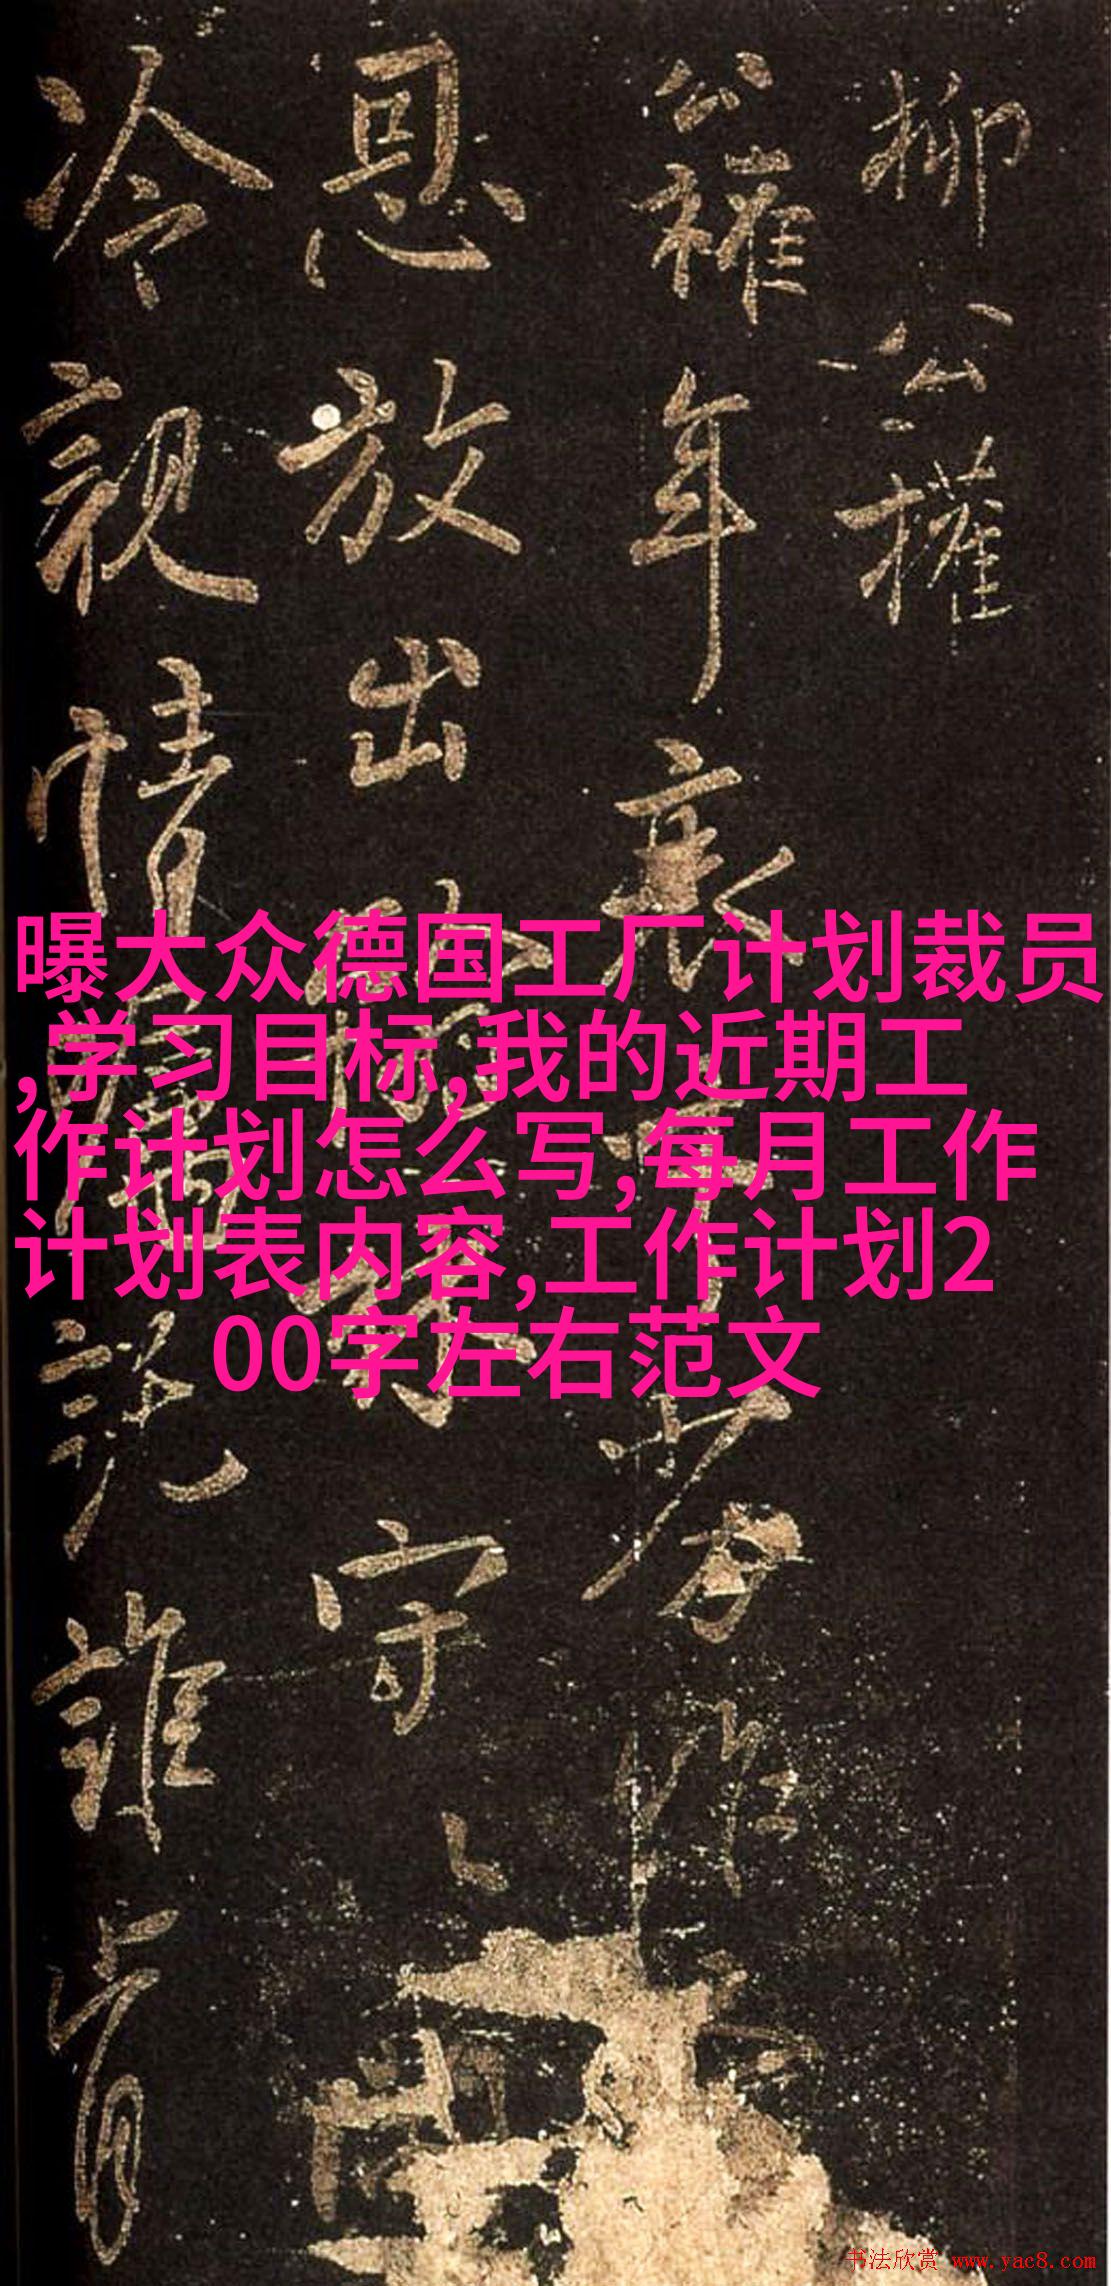 柳公權
公權年衰才劣昨
恩放出翰林守
冷親情嘱託誰肯
曝大众德国工厂计划裁员
,学习目标,我的近期工
作计划怎么写,每月工作
计划表内容,工作计划2
00字左右范文
书法欣赏 www.yac8.com